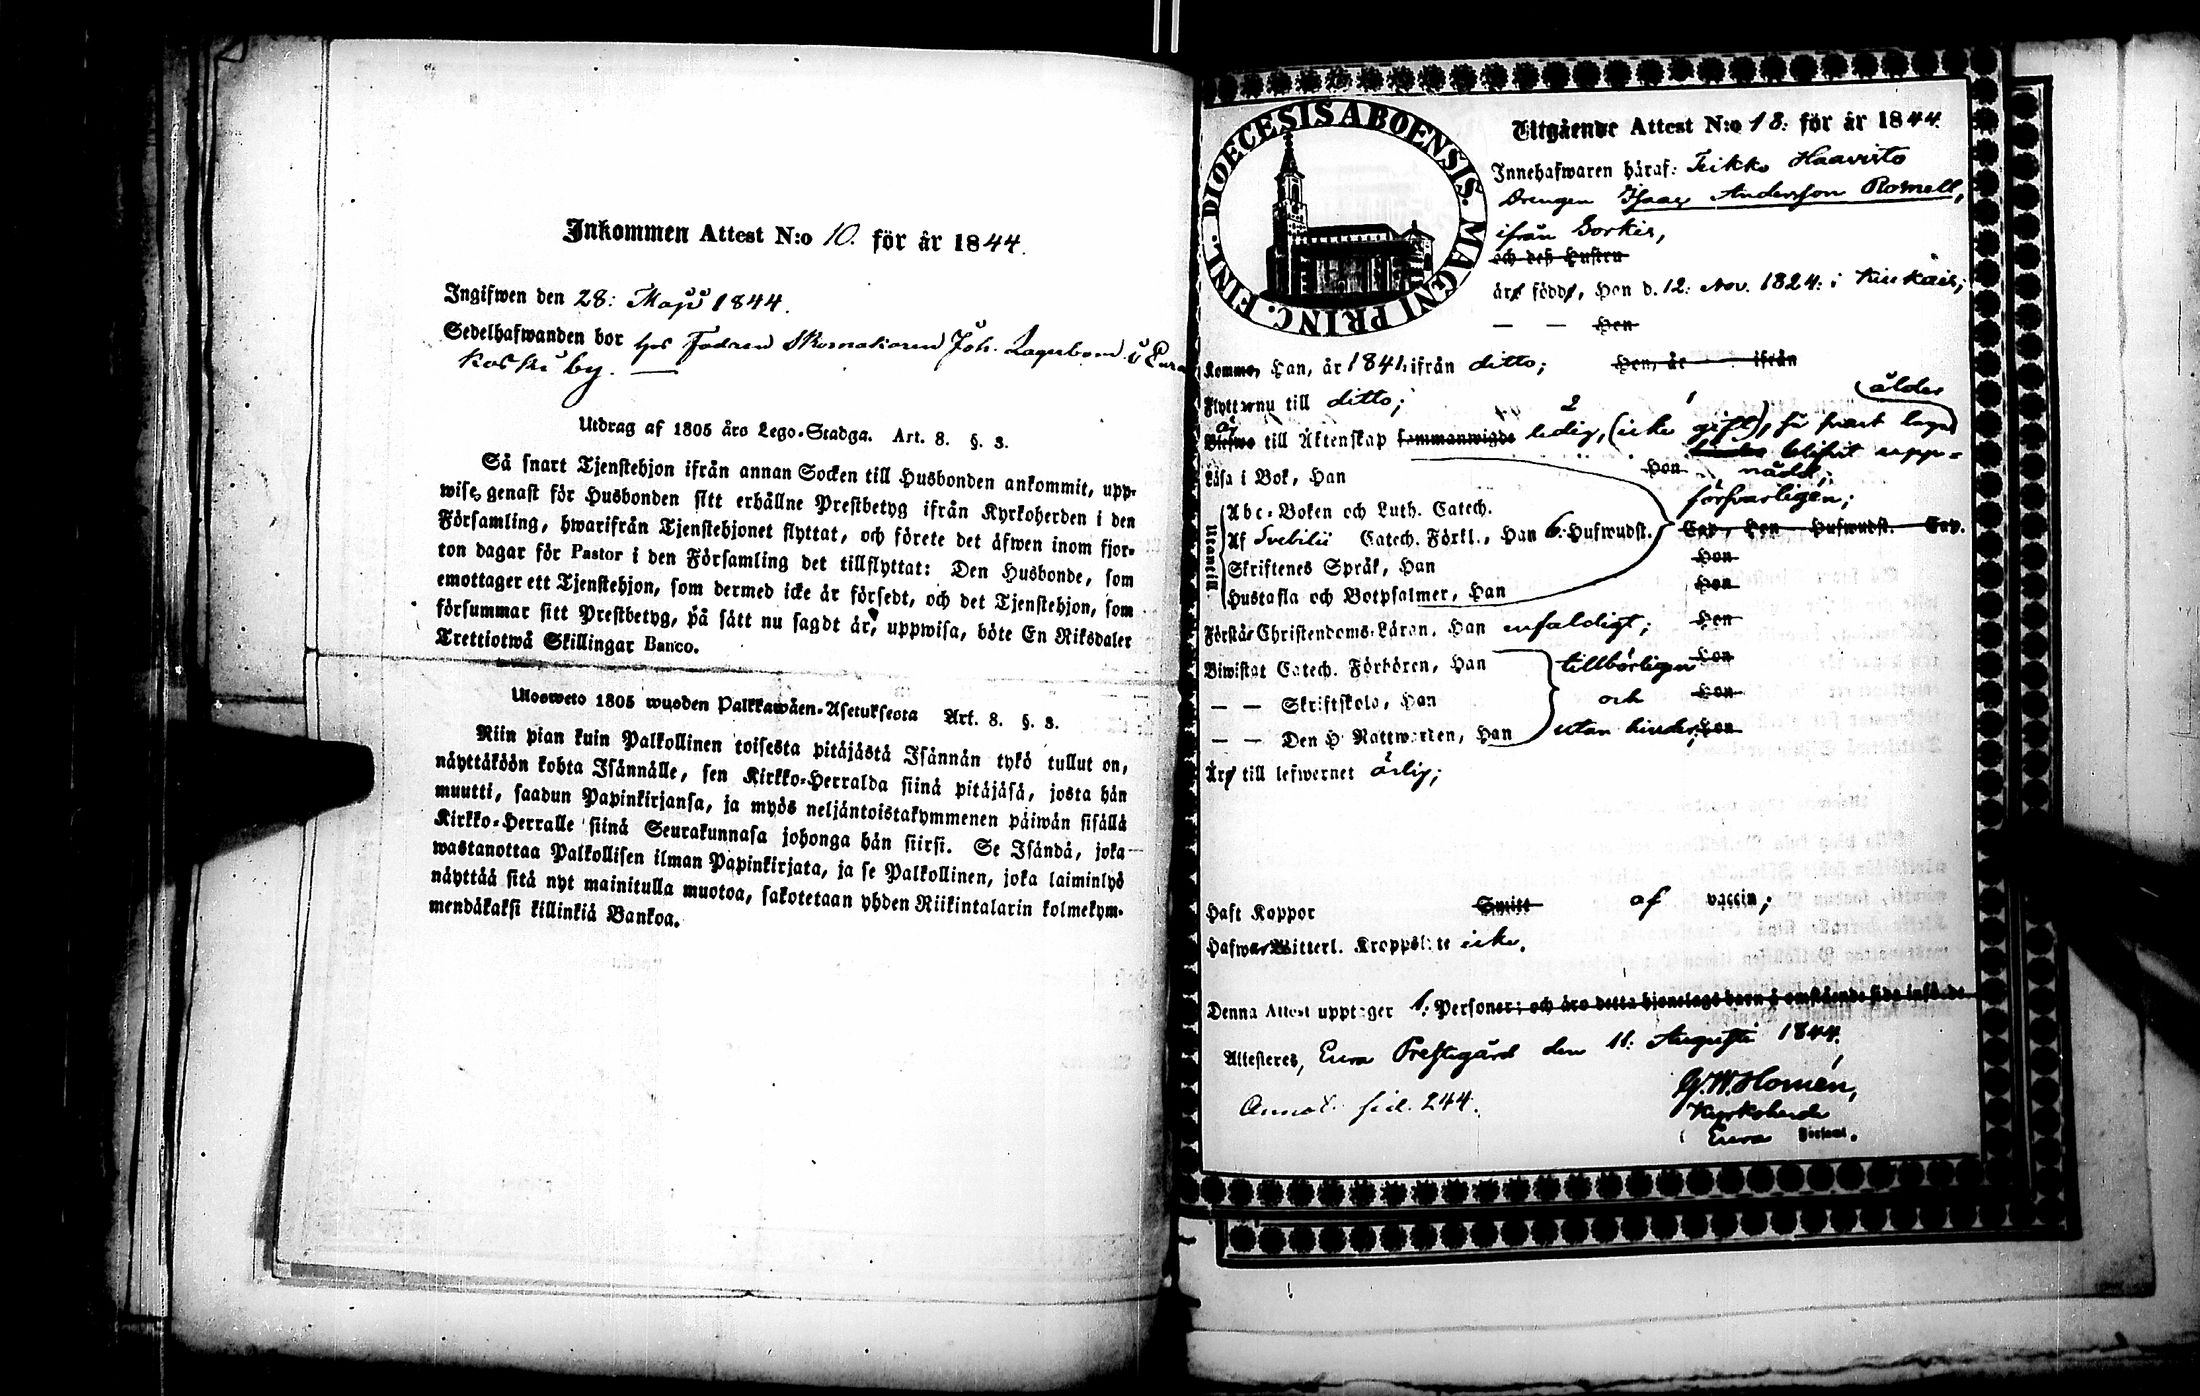 Inkommen Attest N:o 10. för år 1844.
Ingifwen den 28: Maji 1844.
Sedelhafwanden bor hos Fadren Skomakaren Joh. Lagerbom i Eura
Koski by.
Utdrag af 1805 års Lego-Stadga. Art. 8. §. 3.
Så snart Tjenstehjon ifrån annan Socken till Husbonden ankommit, upp-
wise genast för Husbonden sitt erhållne Prestbetyg ifrån Kyrkoherden i den
Församling, hwarifrån Tjenstehjonet flyttat, och förete det äfwen inom fjor-
ton dagar för Pastor i den Församling det tillflyttat: Den Husbonde, som
emottager ett Tjenstehjon, som dermed icke är försedt, och det Tjenstehjon, som
försummar sitt Prestbetyg, på sätt nu sagdt är, uppwisa, böte En Riksdaler
Trettiotwå Skillingar Banco.
Ulosweto 1805 wuoden Palkkawäen-Asetuksesta Art. 8. §. 3.
Niin pian kuin Palkollinen toisesta pitäjästä Isännän tykö tullut on,
näyttäköön kohta Isännälle, sen Kirkko-Herralda siinä pitäjäsä, josta hän
muutti, saadun Papinkirjansa, ja myös neljäntoistakymmenen päiwän sisällä
Kirkko-Herralle siinä Seurakunnasa johonga hän siirsi. Se Isändä, joka
wastanottaa Palkollisen ilman Papinkirjata, ja se Palkollinen, joka laiminlyö
näyttää sitä nyt mainitulla muotoa, sakotetaan yhden Riikintalarin kolmekym-
mendäkaksi killinkiä Bankoa.
DIOECESIS ABOENSIS. MAGNI PRINC. FINL.
Utgående Attest N:o 18: för år 1844.
Innehafwaren häraf: Haavisto
Drengen Isaac Andersson Romell,
ifrån
och deß Hustru
är född, Han d. 12: Nov. 1824: i Kiukais;
— — Hon
Komme, Han, år 1841: ifrån ditto; Hon, år ifrån
Flyttar nu till ditto;
till Äktenskap sammanwigde ledig, (icke gift), så snart laga ålder
blifvit upp-
nådd;
Läsa i Bok, Han Hon
försvarligen;
Utantill
Abc-Boken och Luth. Catech.
Af Svebilii Catech. Förkl., Han 6. Hufwudst. Cap., Hon Hufwudst. Cap.
Skriftenes Språk, Han Hon
Hustafla och Botpsalmer, Han Hon
Förstår Christendoms-Läran, Han enfaldigt; Hon
Biwistat Catech. Förhören, Han tillbörligen Hon
— — Skriftskola, Han och Hon
— — Den H. Nattwarden, Han utan hinder; Hon
Är till lefwernet ärlig;
Haft Koppor Smitt af vaccin;
Hafwa Witterl. Kroppslyte icke.
Denna Attest upptager 1: Personer; och äro detta hjonelags barn å omstående sida införde
Attesteres, Eura Prestegård den 11: Augusti 1844.
G. W. Homén,
Annot. sid. 244. Kyrkoherde
i Eura Församl.